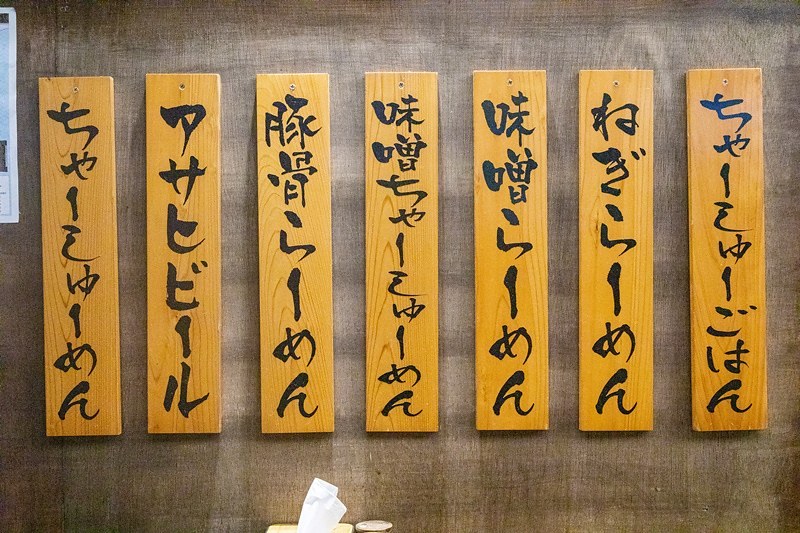 ちゃーしゅーごはん
ねぎらーめん
味噌らーめん
味噌ちゃーしゅーめん
豚骨らーめん
アサヒビール
ちゃーしゅーめん